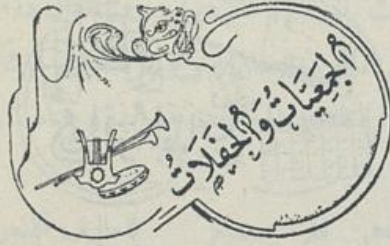 الجَمعِيَاتُ وَالحَفَلَاتُ